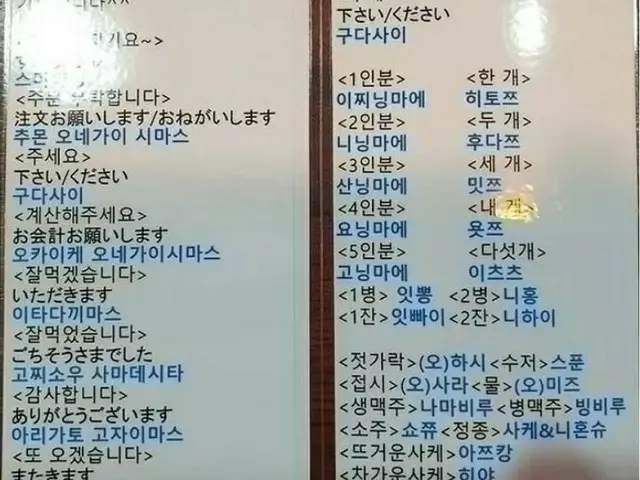 下さい/ください
注文お願いします/おねがいします
추몬 오네가이 시마스
<주세요>
下さい/ください
구다사이
<계산해주세요>
お会計お願いします
오카이케 오네가이시마스
<잘먹겠습니다>
いただきます
이타다끼마스
<잘먹었습니다>
ごちそうさまでした
고찌소우 사마데시타
<감사합니다>
ありがとうございます
아리가토 고자이마스
<또 오겠습니다>
またきます
구다사이
<1인분> <한 개>
이찌닝마에 히토쯔
<2인분> <두 개>
니닝마에 후다쯔
<3인분> <세 개>
산닝마에 밋쯔
<4인분> <내 개>
요닝마에 욧쯔
<5인분> <다섯개>
고닝마에 이츠츠
<1병> 잇뽕 <2병> 니홍
<1잔>잇빠이 <2잔> 니하이
<젓가락>(오)하시 <수저> 스푼
<접시>(오)사라 <물>(오)미즈
<생맥주>나마비루 <병맥주>빙비루
<소주> 쇼쮸 <정종> 사케&니혼슈
<뜨거운사케>아쯔캉
<차가운사케>히야